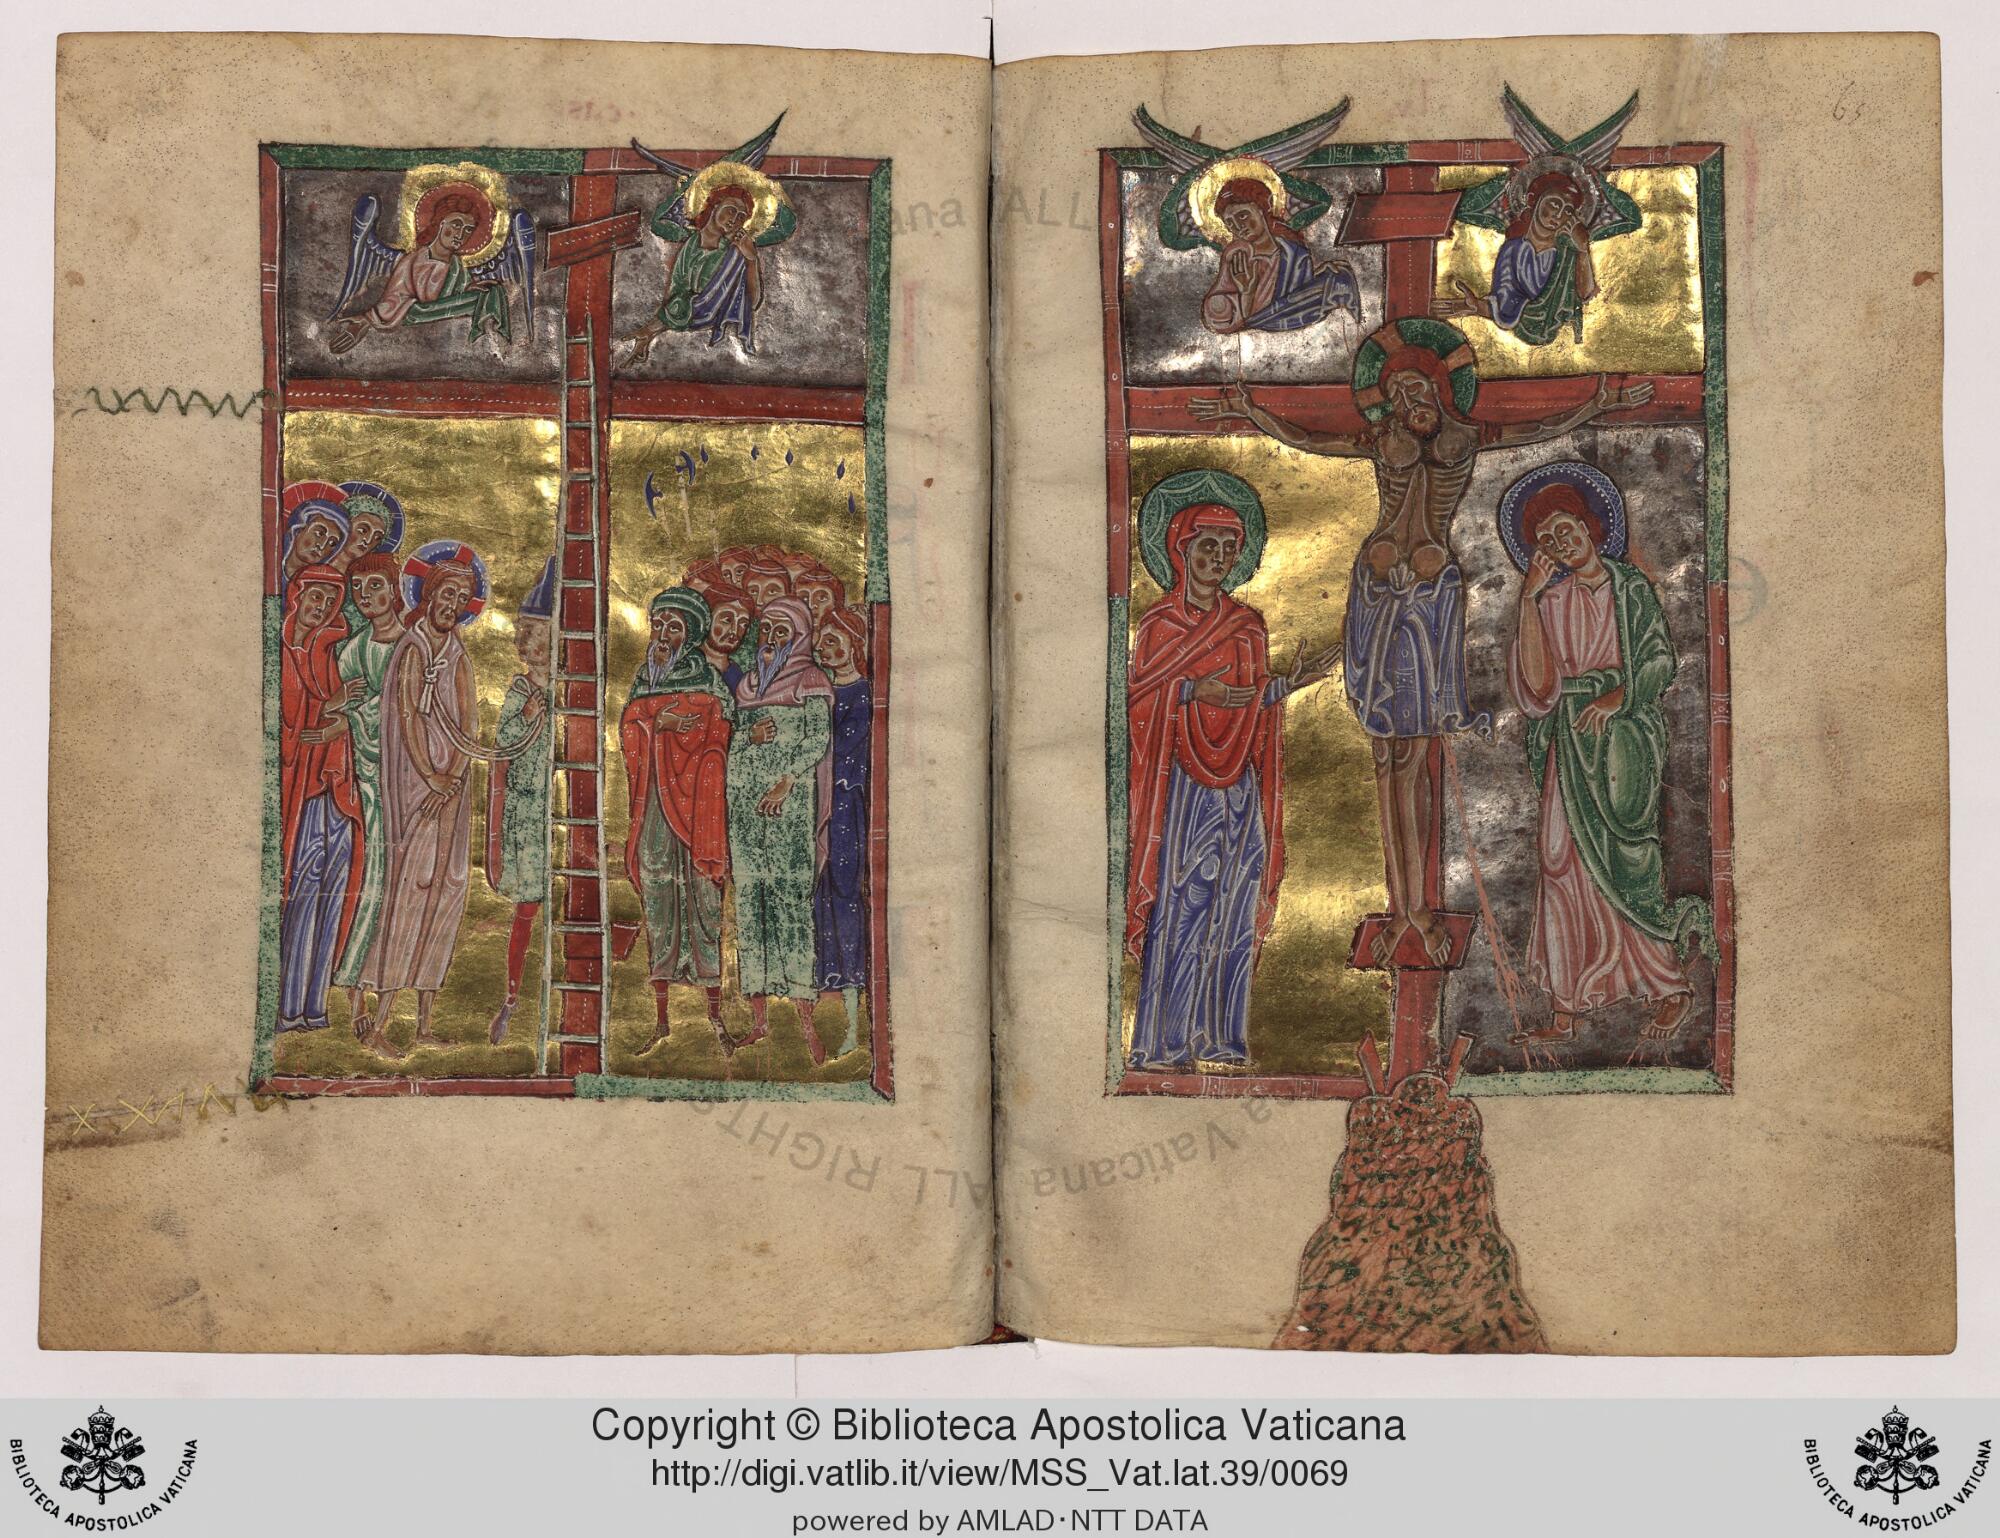 65
ana ALL
ana Vaticana ALL RIGHTS
Copyright © Biblioteca Apostolica Vaticana
http://digi.vatlib.it/view/MSS_Vat.lat.39/0069
powered by AMLAD·NTT DATA
BIBLIOTECA APOSTOLICA VATICANA
BIBLIOTECA APOSTOLICA VATICANA